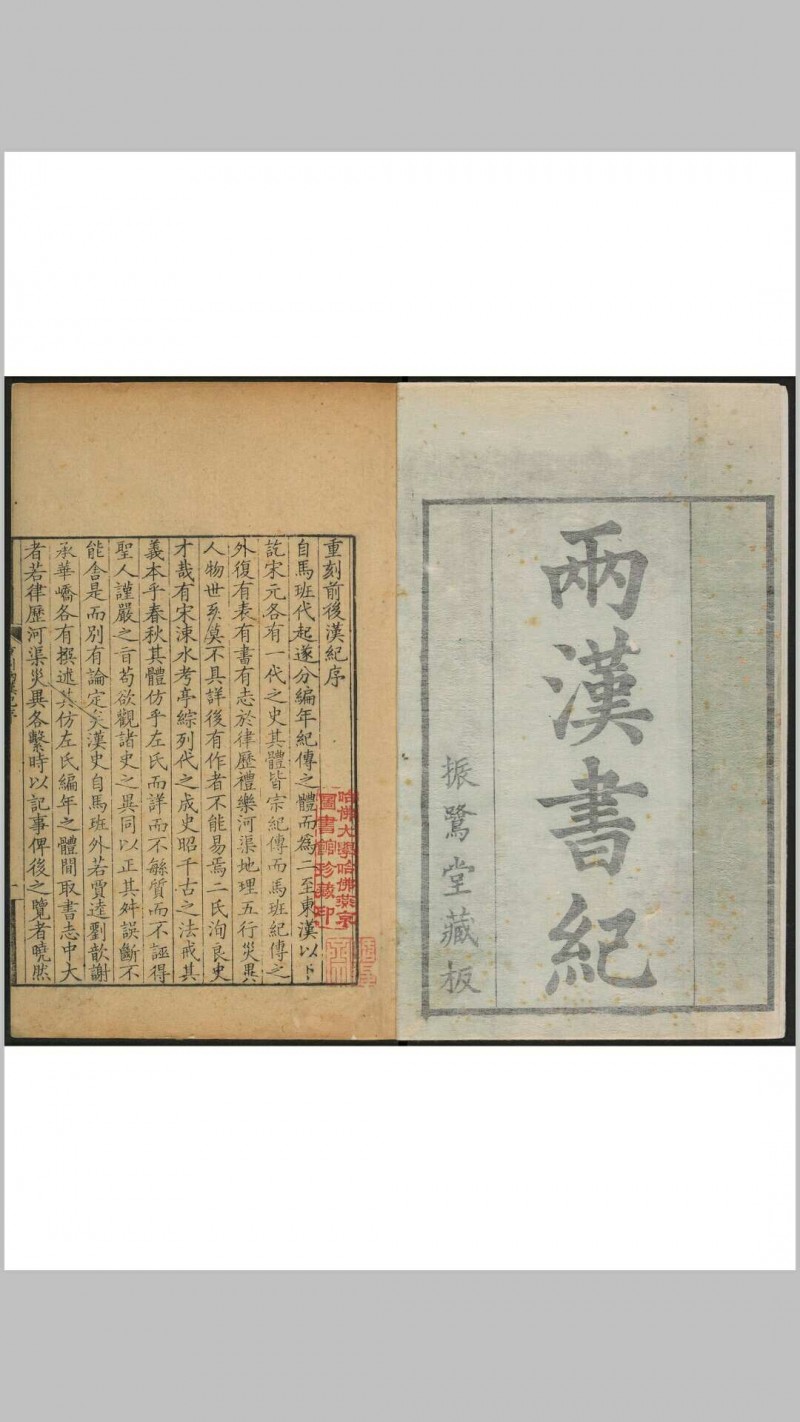 兩漢書紀
振鷺堂藏板
重刻前後漢紀序
自馬班代起遂分編年紀傳之體而為二至東漢以下
訖宋元各有一代之史其體皆宗紀傳而馬班紀傳之
外復有表有書有志於律歷禮樂河渠地理五行災異
人物世系莫不具詳後有作者不能易焉二氏洵良史
才哉有宋涑水考亭綜列代之成史昭千古之法戒其
義本乎春秋其體仿乎左氏而詳而不繇質而不誣得
聖人謹嚴之旨苟欲觀諸史之異同以正其舛誤斷不
能舍是而別有論定矣漢史自馬班外若賈逵劉歆謝
承華嶠各有撰述其仿左氏編年之體間取書志中大
者若律歷河渠災異各繫時以記事俾後之覽者曉然
哈佛大學哈佛燕京
圖書館珍藏印